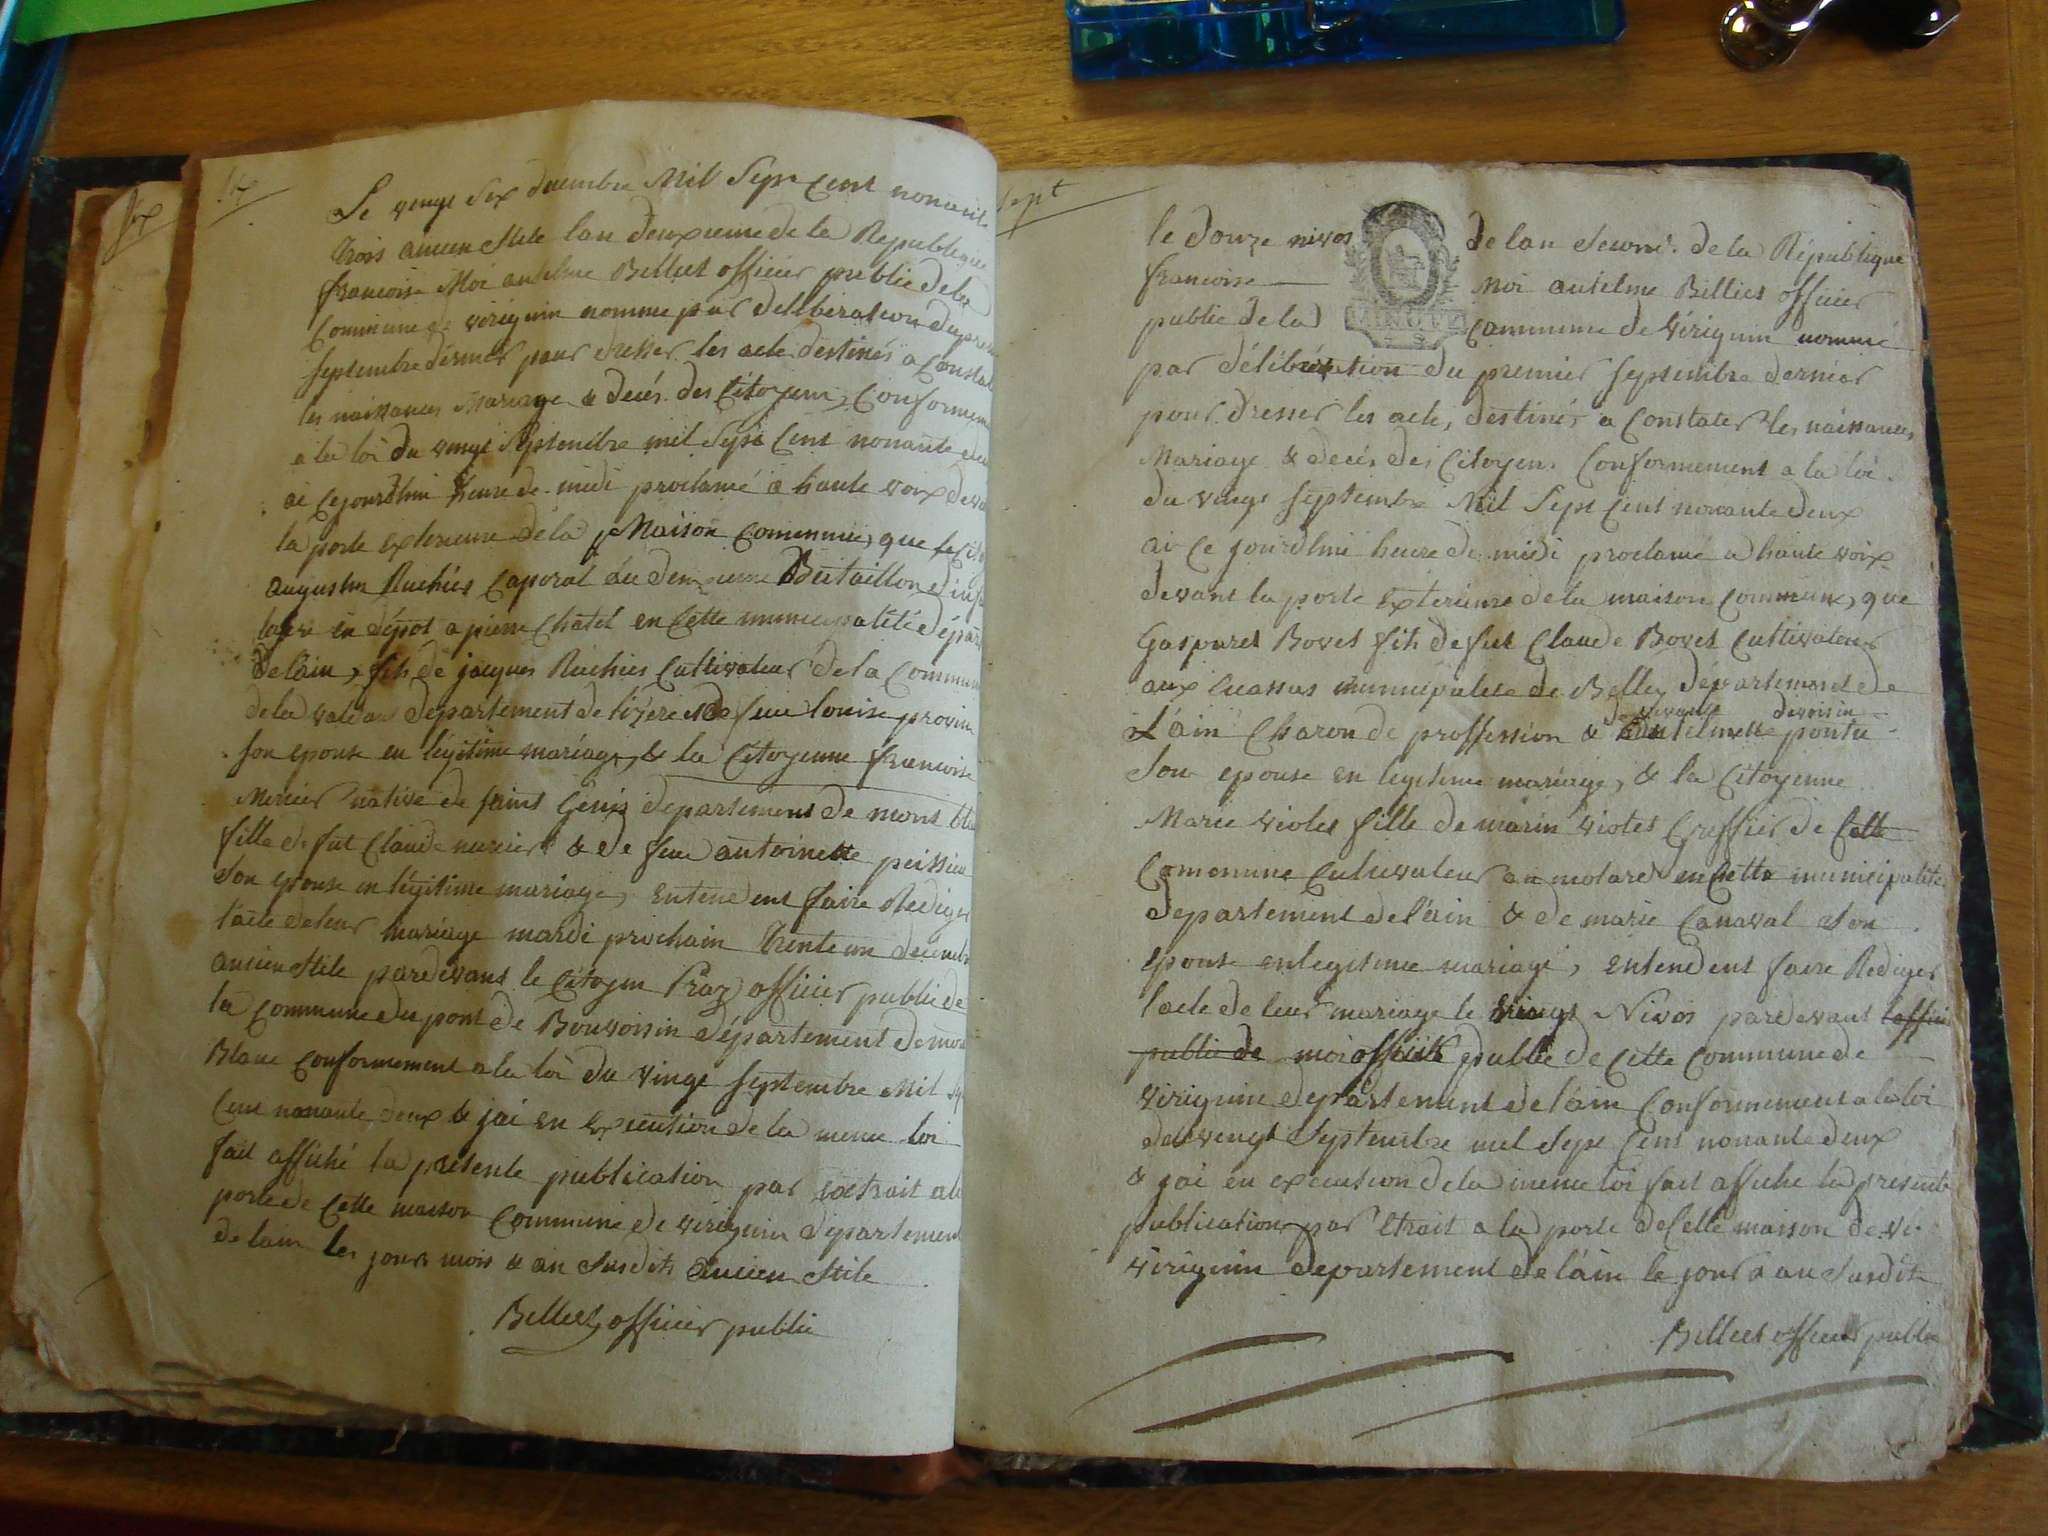 Six
Le vengt Six decembre Mil Sept Cent nonente
trois ancien Stile lan deuxieme de la Republique
francoise Moi anselme Billiet officier public de la
Commune de virignin nomme par deliberation du prem
septembre dernier pour dresser les acte destinés a Constat
les naissances Mariage & decés des Citoyens, Conformem
a la loi du vengt Septembre mil Sept Cent nonante deu
ai Cejourdhui heure de midi proclamé a haute voix deva
la porte exterieure de la Maison Commune, que le Cito
augustin Ruchier Caporal au deuxieme Bataillon dinfa
en dépot a pierre Chatel en Cette municipalité dépar
de lain, fils de jacques Ruchier Cultivateur de la Commun
de la departement de lizere et de feue louise provin
son epouse en légitime mariage, & la Citoyenne francoise
Mercier native de saint Genis departement de mont bla
fille de fut Claude mercier & de feue antoinette peissieu
Son epouse en légitime mariage, entendent faire Rediger
lacte de leur mariage mardi prochain trente un decemb
ancien Stile pardevant le Citoyen officier public de
la Commune du pont de Bonvoisin département de mon
Blanc Conformement a la loi du vingt septembre Mil Sep
Cent nonante deux & jai en execution de la meme loi
fait affiché la presente publication par extrait a la
porte de Cette maison Commune de virignin département
de lain les jour mois & an Susdits ancien Stile
Billiet, officier public
Sept
le douze nivos de lan Second. de la République
francoise Moi anselme Billiet officier
public de la Commune de virignin nommé
par délibération du premier septembre dernier
pour dresser les acte, destinés a Constater les naissances
Mariage & decés des Citoyens Conformement a la loi
du vingt septembre Mil Sept Cent nonante deux
ai Ce jourdhui heure de midi proclamé a haute voix
devant la porte exterieure de la maison Commune, que
Gaspard Bovet fils de fut Claude Bovet Cultivateur
aux Ecassas municipalite de Belley département de
L'ain Charon de proffession & pontu
Son epouse en legitime mariage, & la Citoyenne
Marie violet fille de marin violet Greffier de Cette
Commune Cultivateur au molard en Cette municipalité
departement de l'ain & de marie Canaval Son
epouse en legitime mariage, entendent faire Rediger
lacte de leur mariage le vingt Nivos pardevant loffici
public de moi officié public de Cette Commune de
virignin departement de l'ain Conformement a la loi
du vengt Septembre mil Sept Cent nonante deux
& jai en execution de la meme loi fait affiche la presente
publication par Etrait a la porte de Cette maison de vi-
virignin departement de l'ain le jour & an Susdits
Billiet officier public